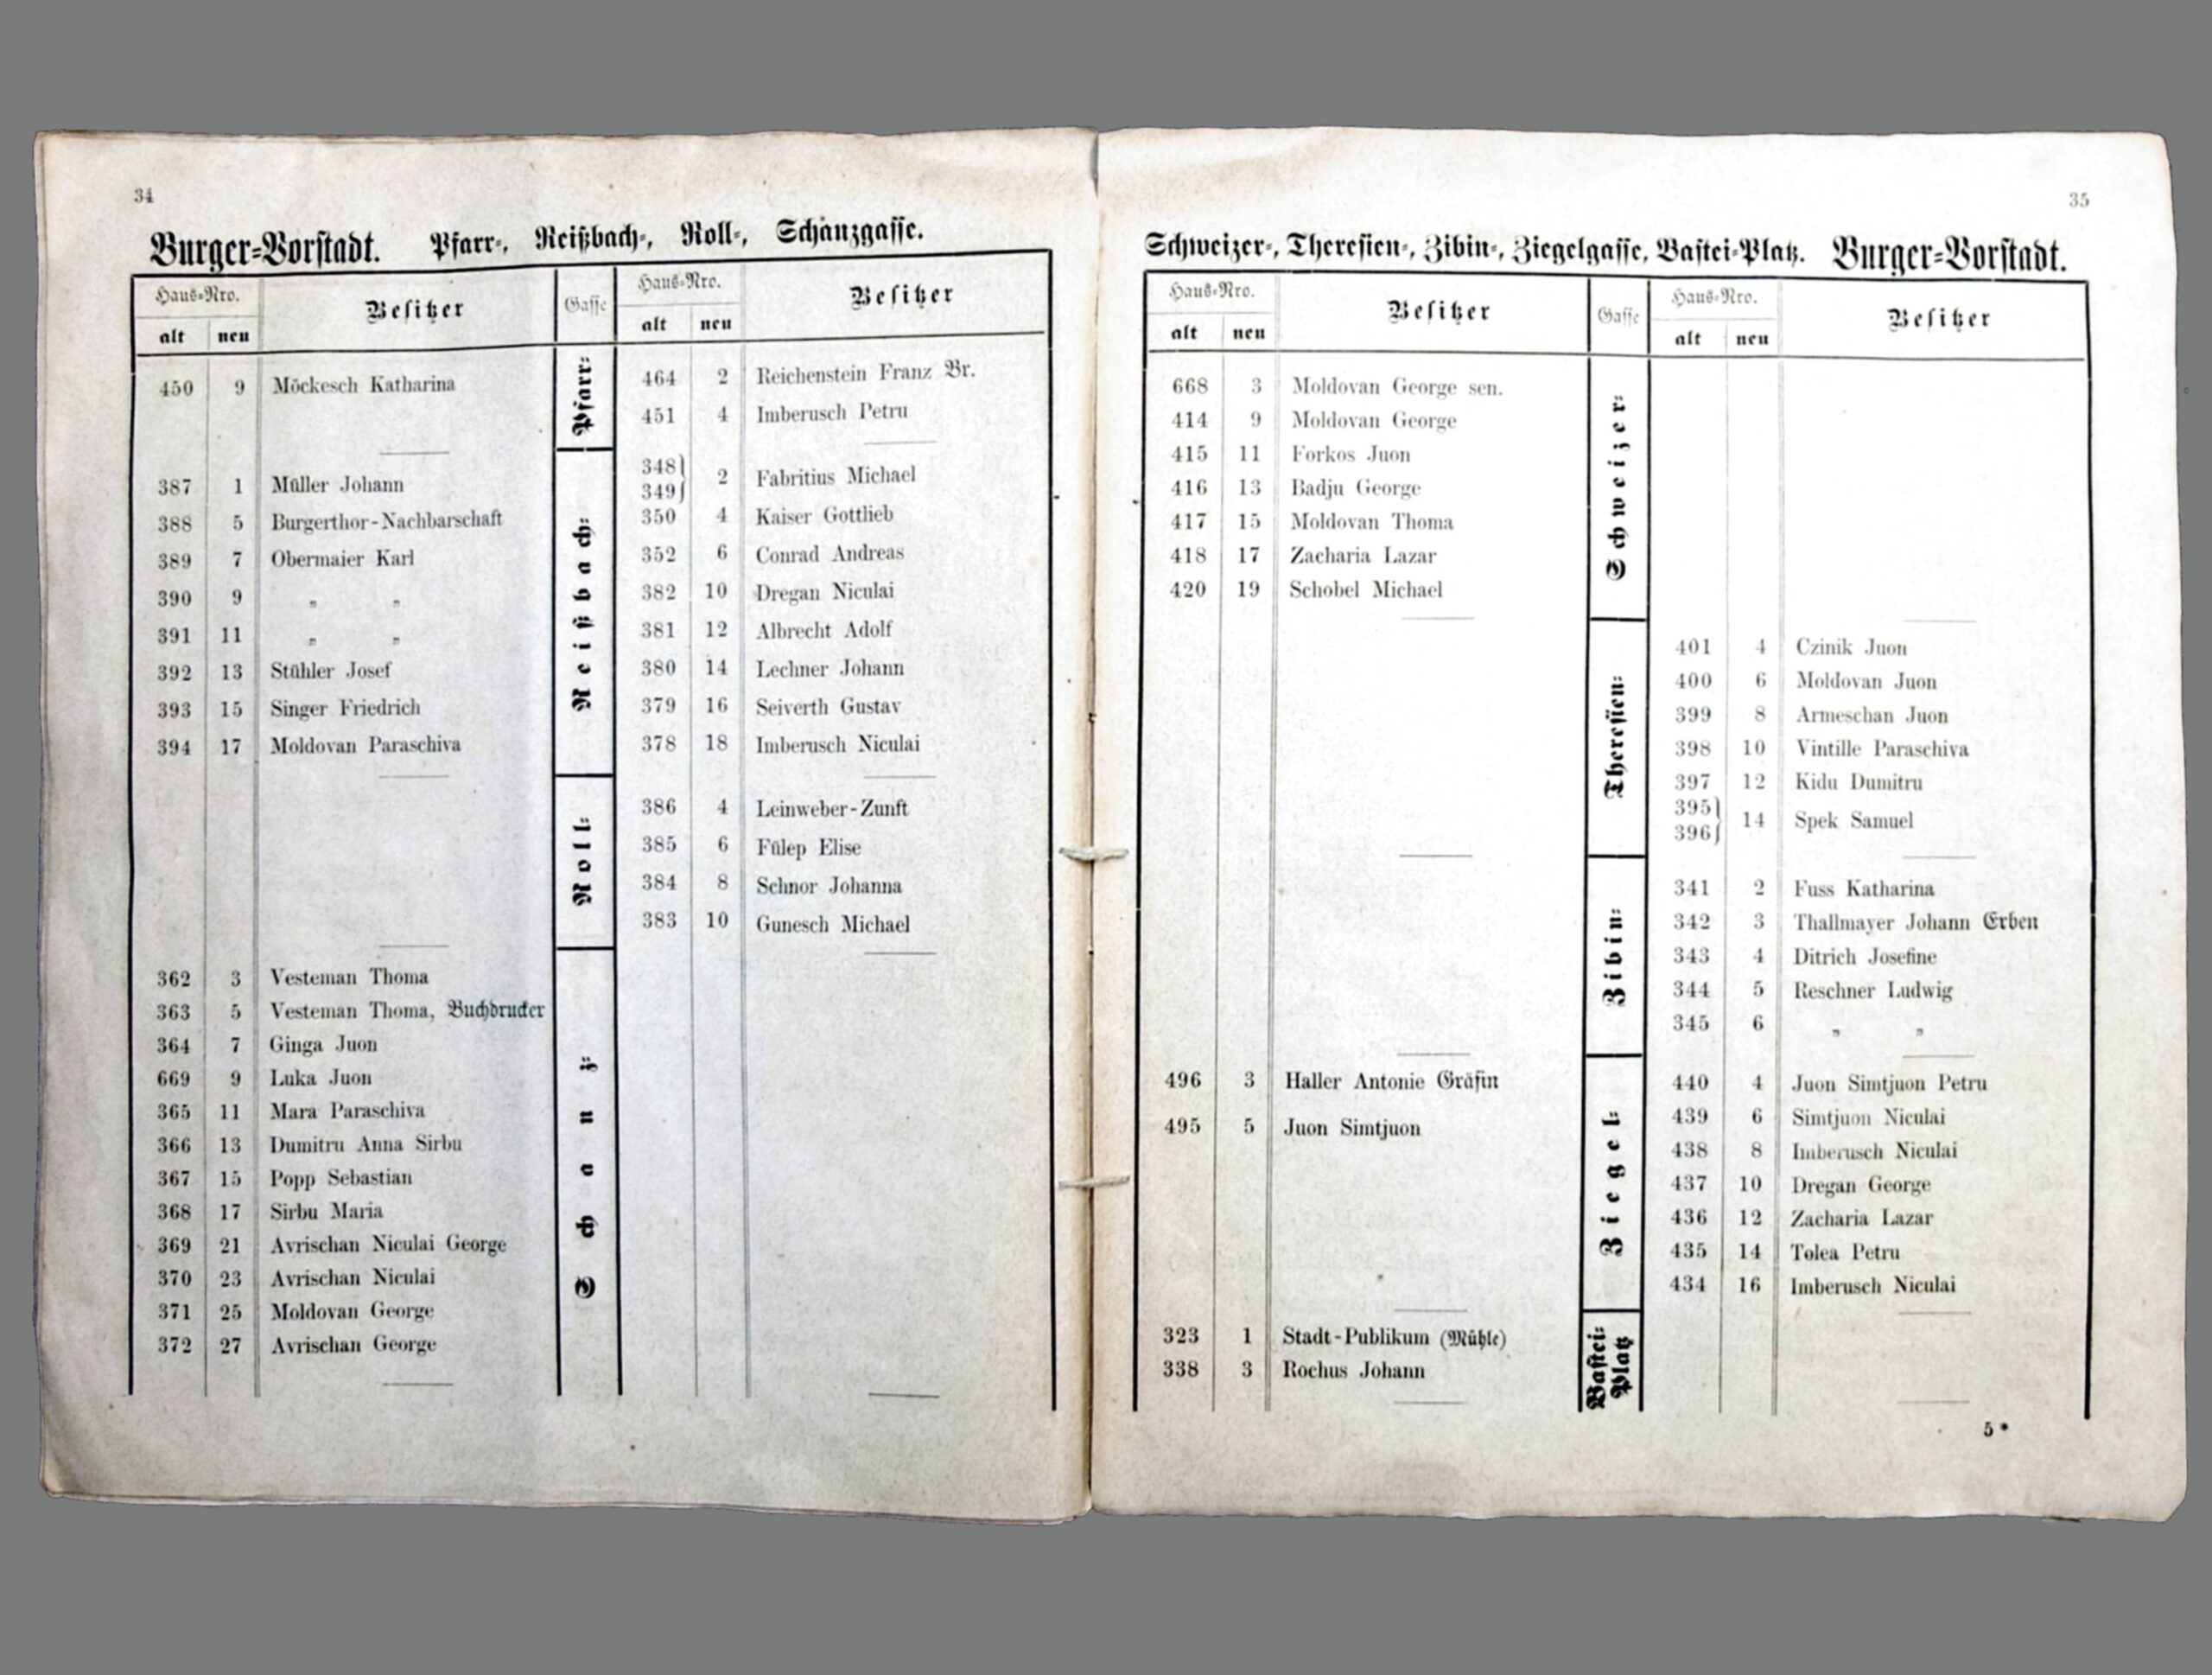 34
Burger-Vorstadt. Pfarr-, Reißbach-, Roll-, Schanzgasse.
Haus-Nro. Besitzer Gasse Haus-Nro. Besitzer
alt neu alt neu
Pfarr-
450 9 Möckesch Katharina 464 2 Reichenstein Franz Br.
451 4 Imberusch Petru
Reißbach-
387 1 Müller Johann 348 349 2 Fabritius Michael
388 5 Burgerthor-Nachbarschaft 350 4 Kaiser Gottlieb
389 7 Obermaier Karl 352 6 Conrad Andreas
390 9 „ „ 382 10 Dregan Niculai
391 11 „ „ 381 12 Albrecht Adolf
392 13 Stühler Josef 380 14 Lechner Johann
393 15 Singer Friedrich 379 16 Seiverth Gustav
394 17 Moldovan Paraschiva 378 18 Imberusch Niculai
Roll-
386 4 Leinweber-Zunft
385 6 Fülep Elise
384 8 Schnor Johanna
383 10 Gunesch Michael
Schanz-
362 3 Vesteman Thoma
363 5 Vesteman Thoma, Buchdrucker
364 7 Ginga Juon
669 9 Luka Juon
365 11 Mara Paraschiva
366 13 Dumitru Anna Sirbu
367 15 Popp Sebastian
368 17 Sirbu Maria
369 21 Avrischan Niculai George
370 23 Avrischan Niculai
371 25 Moldovan George
372 27 Avrischan George
35
Schweizer-, Theresien-, Zibin-, Ziegelgasse, Bastei-Platz. Burger-Vorstadt.
Haus-Nro. Besitzer Gasse Haus-Nro. Besitzer
alt neu alt neu
Schweizer-
668 3 Moldovan George sen.
414 9 Moldovan George
415 11 Forkos Juon
416 13 Badju George
417 15 Moldovan Thoma
418 17 Zacharia Lazar
420 19 Schobel Michael
Theresien-
401 4 Czinik Juon
400 6 Moldovan Juon
399 8 Armeschan Juon
398 10 Vintille Paraschiva
397 12 Kidu Dumitru
395 396 14 Spek Samuel
Zibin-
341 2 Fuss Katharina
342 3 Thallmayer Johann Erben
343 4 Ditrich Josefine
344 5 Reschner Ludwig
345 6 „ „
Ziegel-
496 3 Haller Antonie Gräfin 440 4 Juon Simtjuon Petru
495 5 Juon Simtjuon 439 6 Simtjuon Niculai
438 8 Imberusch Niculai
437 10 Dregan George
436 12 Zacharia Lazar
435 14 Tolea Petru
434 16 Imberusch Niculai
Bastei-Platz
323 1 Stadt-Publikum (Mühle)
338 3 Rochus Johann
5*